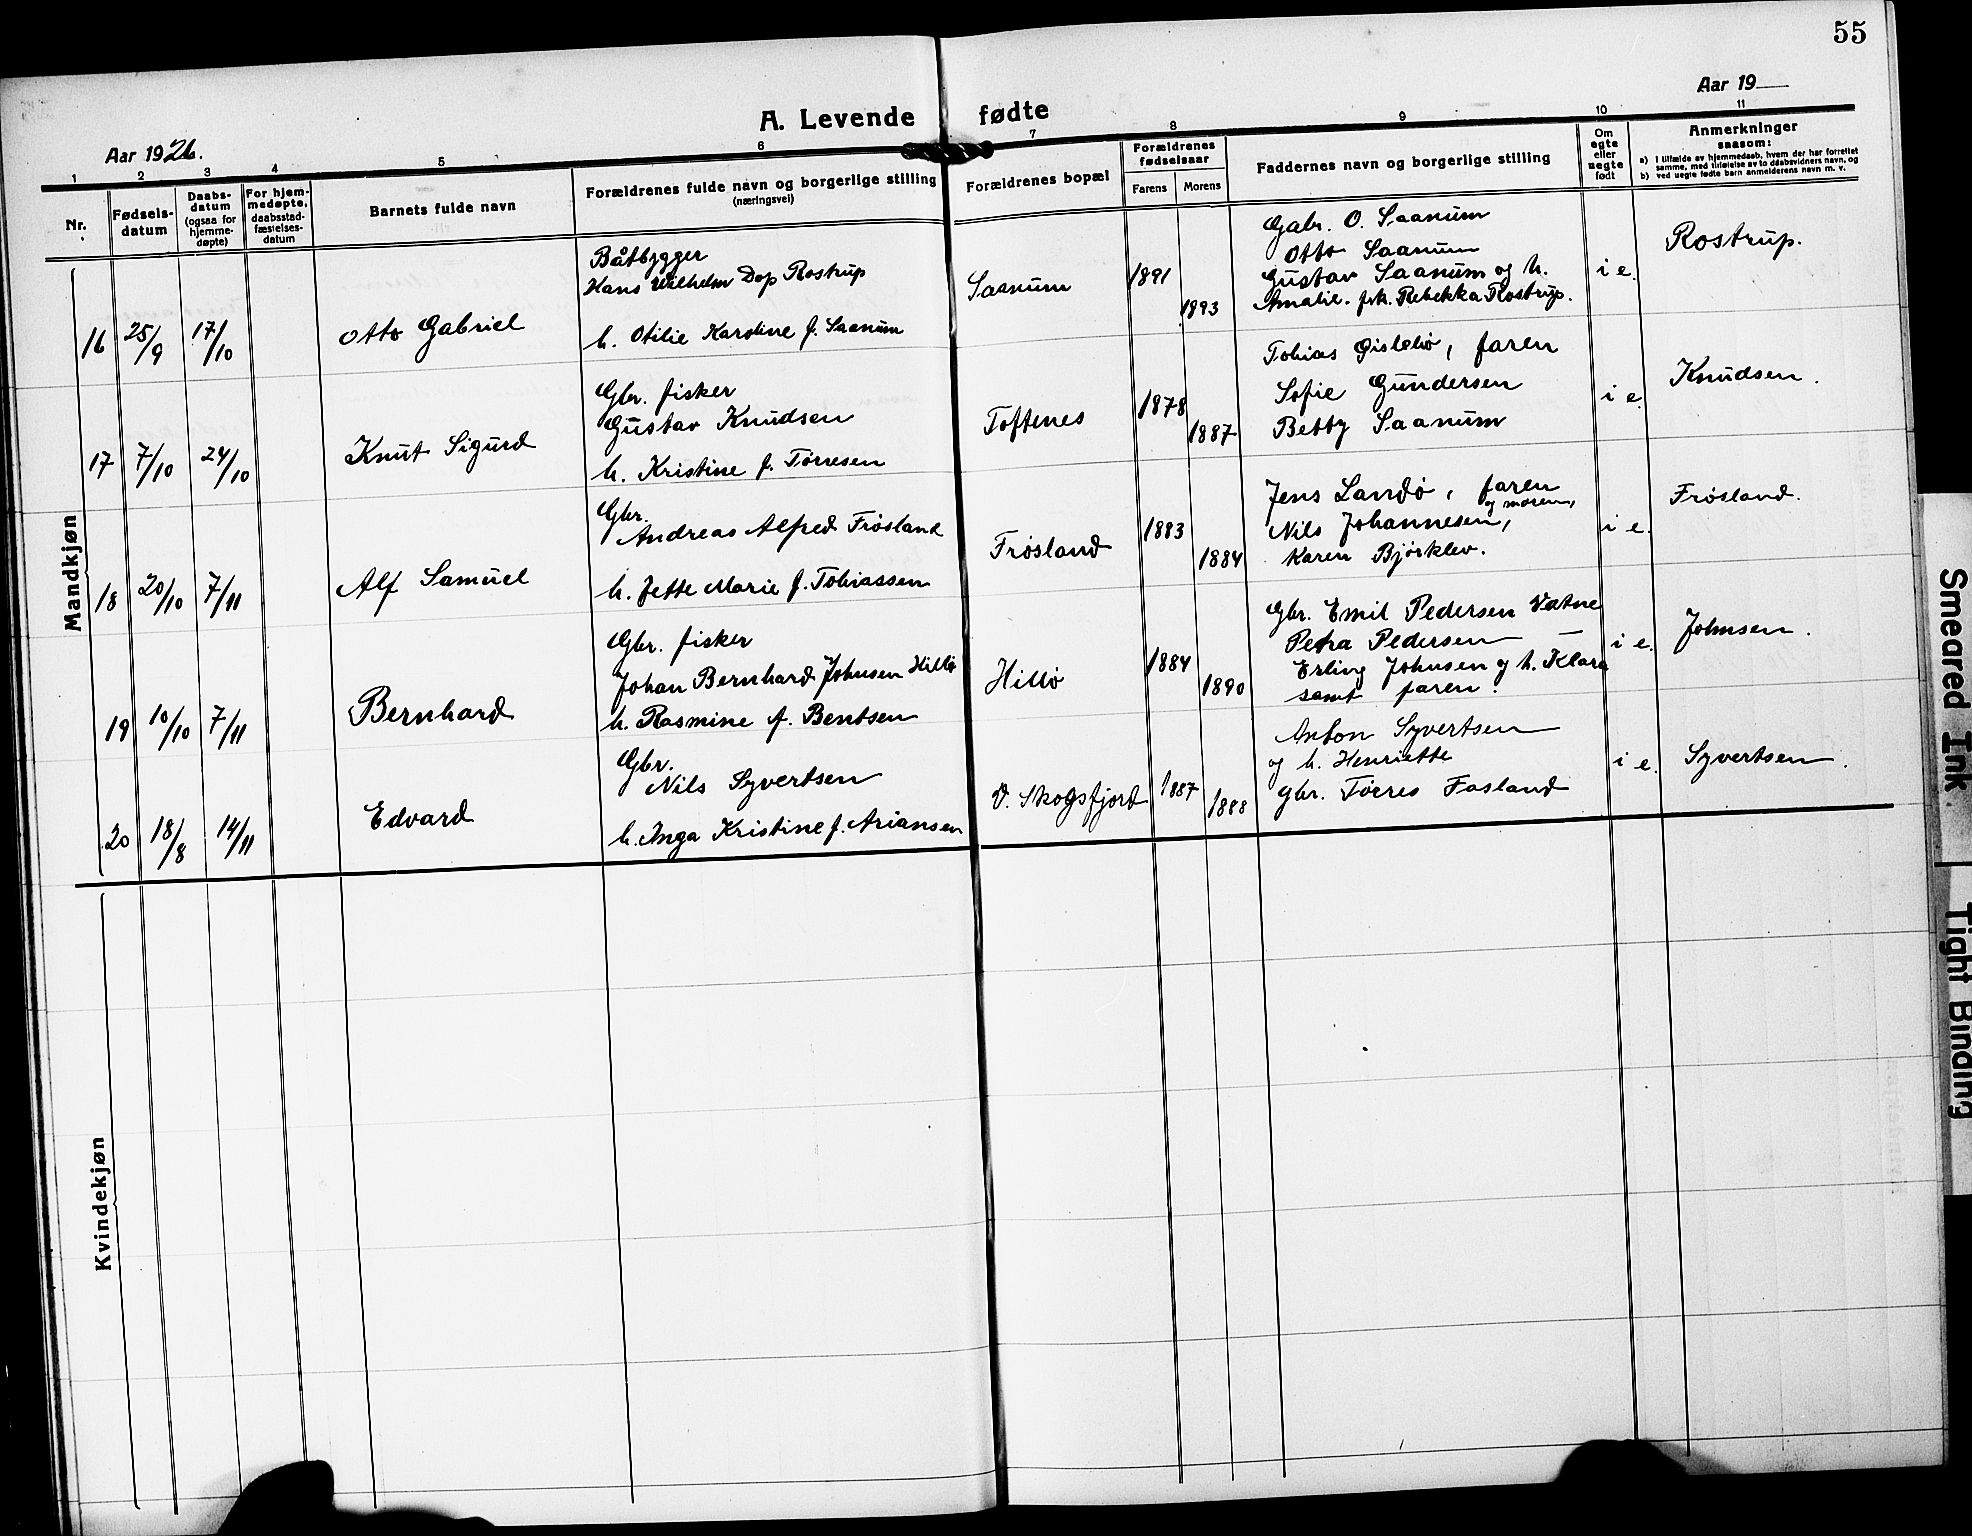 55
Aar 1926.
A. Levende fødte
Aar 19
1 2 3 4 5 6 7 8 9 10 11
Nr.
Fødsels-
datum
Daabs-
datum
(ogsaa for
hjemme-
døpte)
For hjem-
medøpte,
daabsstad-
fæstelses-
datum
Barnets fulde navn
Forældrenes fulde navn og borgerlige stilling
(næringsvei)
Forældrenes bopæl
Forældrenes
fødselsaar
Farens Morens
Faddernes navn og borgerlige stilling
Om
egte
eller
uegte
født
Anmerkninger
saasom:
a) I tilfælde av hjemmedaab, hvem der har forrettet
samme, med tilføielse av to daabsvidners navn, og
b) ved uegte fødte barn anmelderens navn m. v.
Mandkjøn
16 25/9 17/10
Otto Gabriel
Båtbygger
Hans Wilhelm Dop Rostrup
h. Otilie Karoline f. Saanum
Saanum
1891
1893
Gabr. O. Saanum
Otto Saanum
Gustav Saanum og h.
Amalie. frk. Rebekka Rostrup.
i e.
Rostrup.
17 7/10 24/10
Knut Sigurd
Gbr. fisker
Gustav Knudsen
h. Kristine f. Tørresen
Toftenes
1878
1887
Tobias Gislebø, faren
Sofie Gundersen
Betty Saanum
i e.
Knudsen.
18 20/10 7/11
Alf Samuel
Gbr.
Andreas Alfred Frøsland
h. Jette Marie f. Tobiassen
Frøsland
1883
1884
Jens Landø, faren
og moren,
Nils Johannesen,
Karen Bjørklev.
i e.
Frøsland.
19 10/10 7/11
Bernhard
Gbr. fisker
Johan Bernhard Johnsen Hillø
h. Rasmine f. Bentsen
Hillø
1884
1890
Gbr. Emil Pedersen Vatne
Petra Pedersen —
Erling Johnsen og h. Klara
samt faren.
i e.
Johnsen.
20 18/8 14/11
Edvard
Gbr.
Nils Syvertsen
h. Inga Kristine f. Ariansen
V. Skogsfjord
1887
1888
Anton Syvertsen
og h. Henriette
Gbr. Tørres Fasland
i e.
Syvertsen.
Kvindekjøn
Smeared Ink
Tight Binding